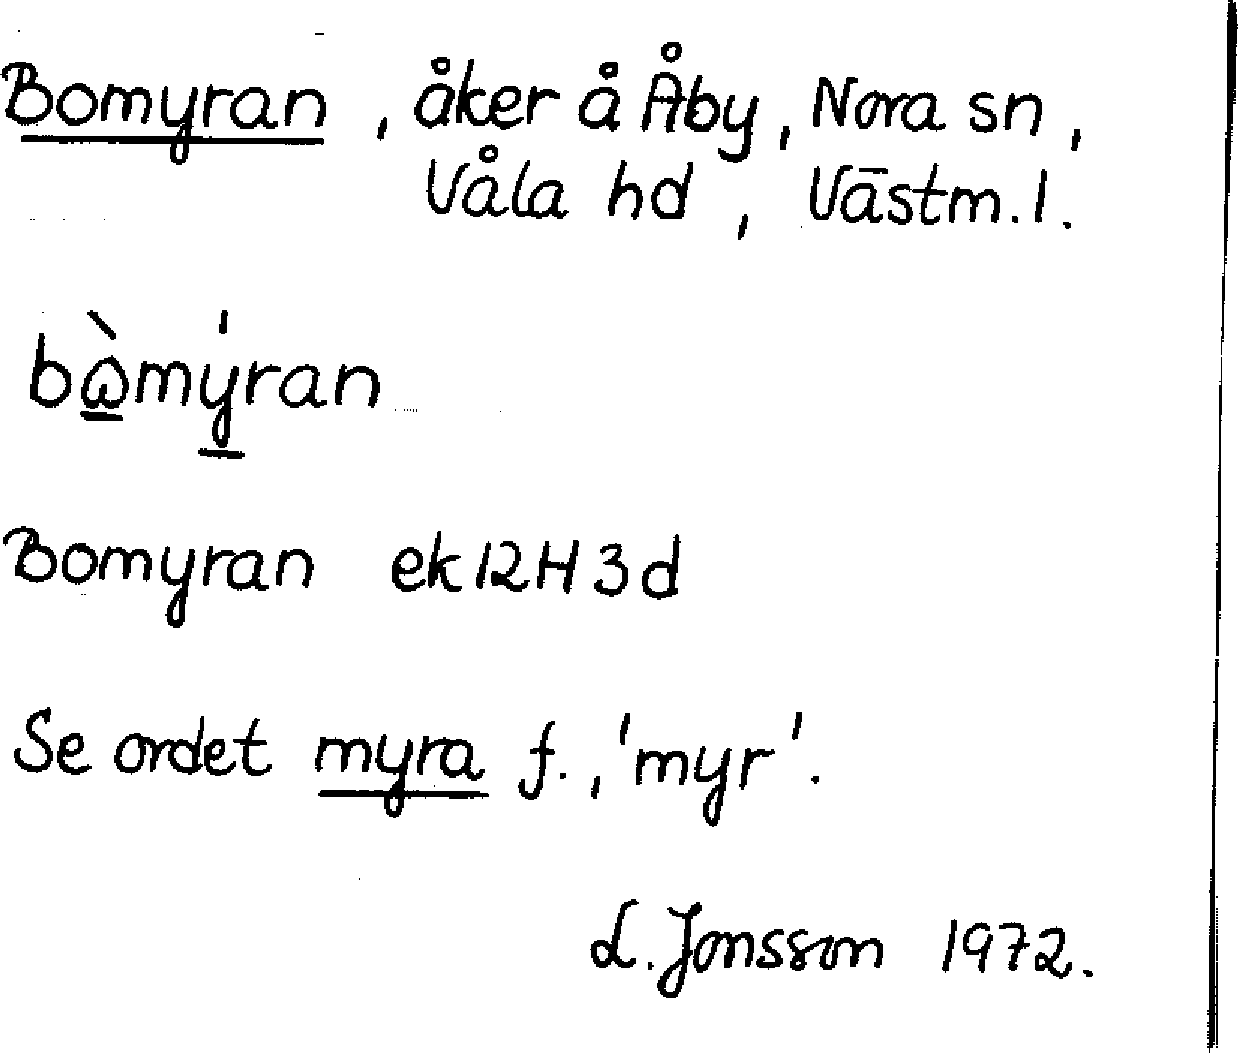 Bomyran, åker å Åby, Nora sn,
Våla hd, Västm. l.
bὼ̲mý̲ran
Bomyran ek 12H 3d
Se ordet myra f., 'myr'.
L. Jonsson 1972.